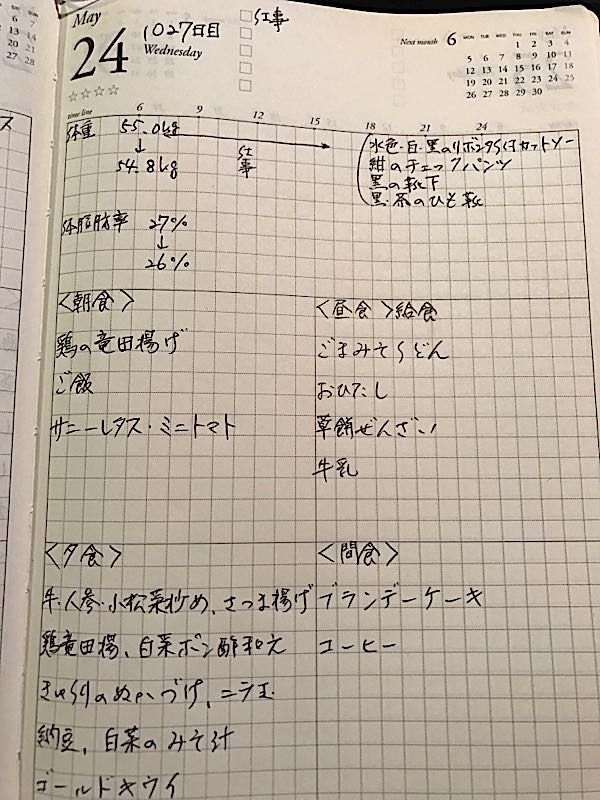 May
24
Wednesday
☆☆☆☆
1027日目
仕事
Next month 6
MON TUE WED THU FRI SAT SUN
1 2 3 4
5 6 7 8 9 10 11
12 13 14 15 16 17 18
19 20 21 22 23 24 25
26 27 28 29 30
time line 6 9 12 15 18 21 24
体重 55.0kg
↓
54.8kg
仕事
水色・白・黒のリボンタイ付カットソー
紺のチェックパンツ
黒の靴下
黒・茶のひも靴
体脂肪率 27%
↓
26%
<朝食>
鶏の竜田揚げ
ご飯
サニーレタス・ミニトマト
<昼食>給食
ごまみそうどん
おひたし
草餅ぜんざい
牛乳
<夕食>
牛・人参・小松菜炒め、さつま揚げ
鶏竜田揚、白菜ポン酢和え
きゅうりのぬかづけ、ニラ玉
納豆、白菜のみそ汁
ゴールドキウイ
<間食>
ブランデーケーキ
コーヒー